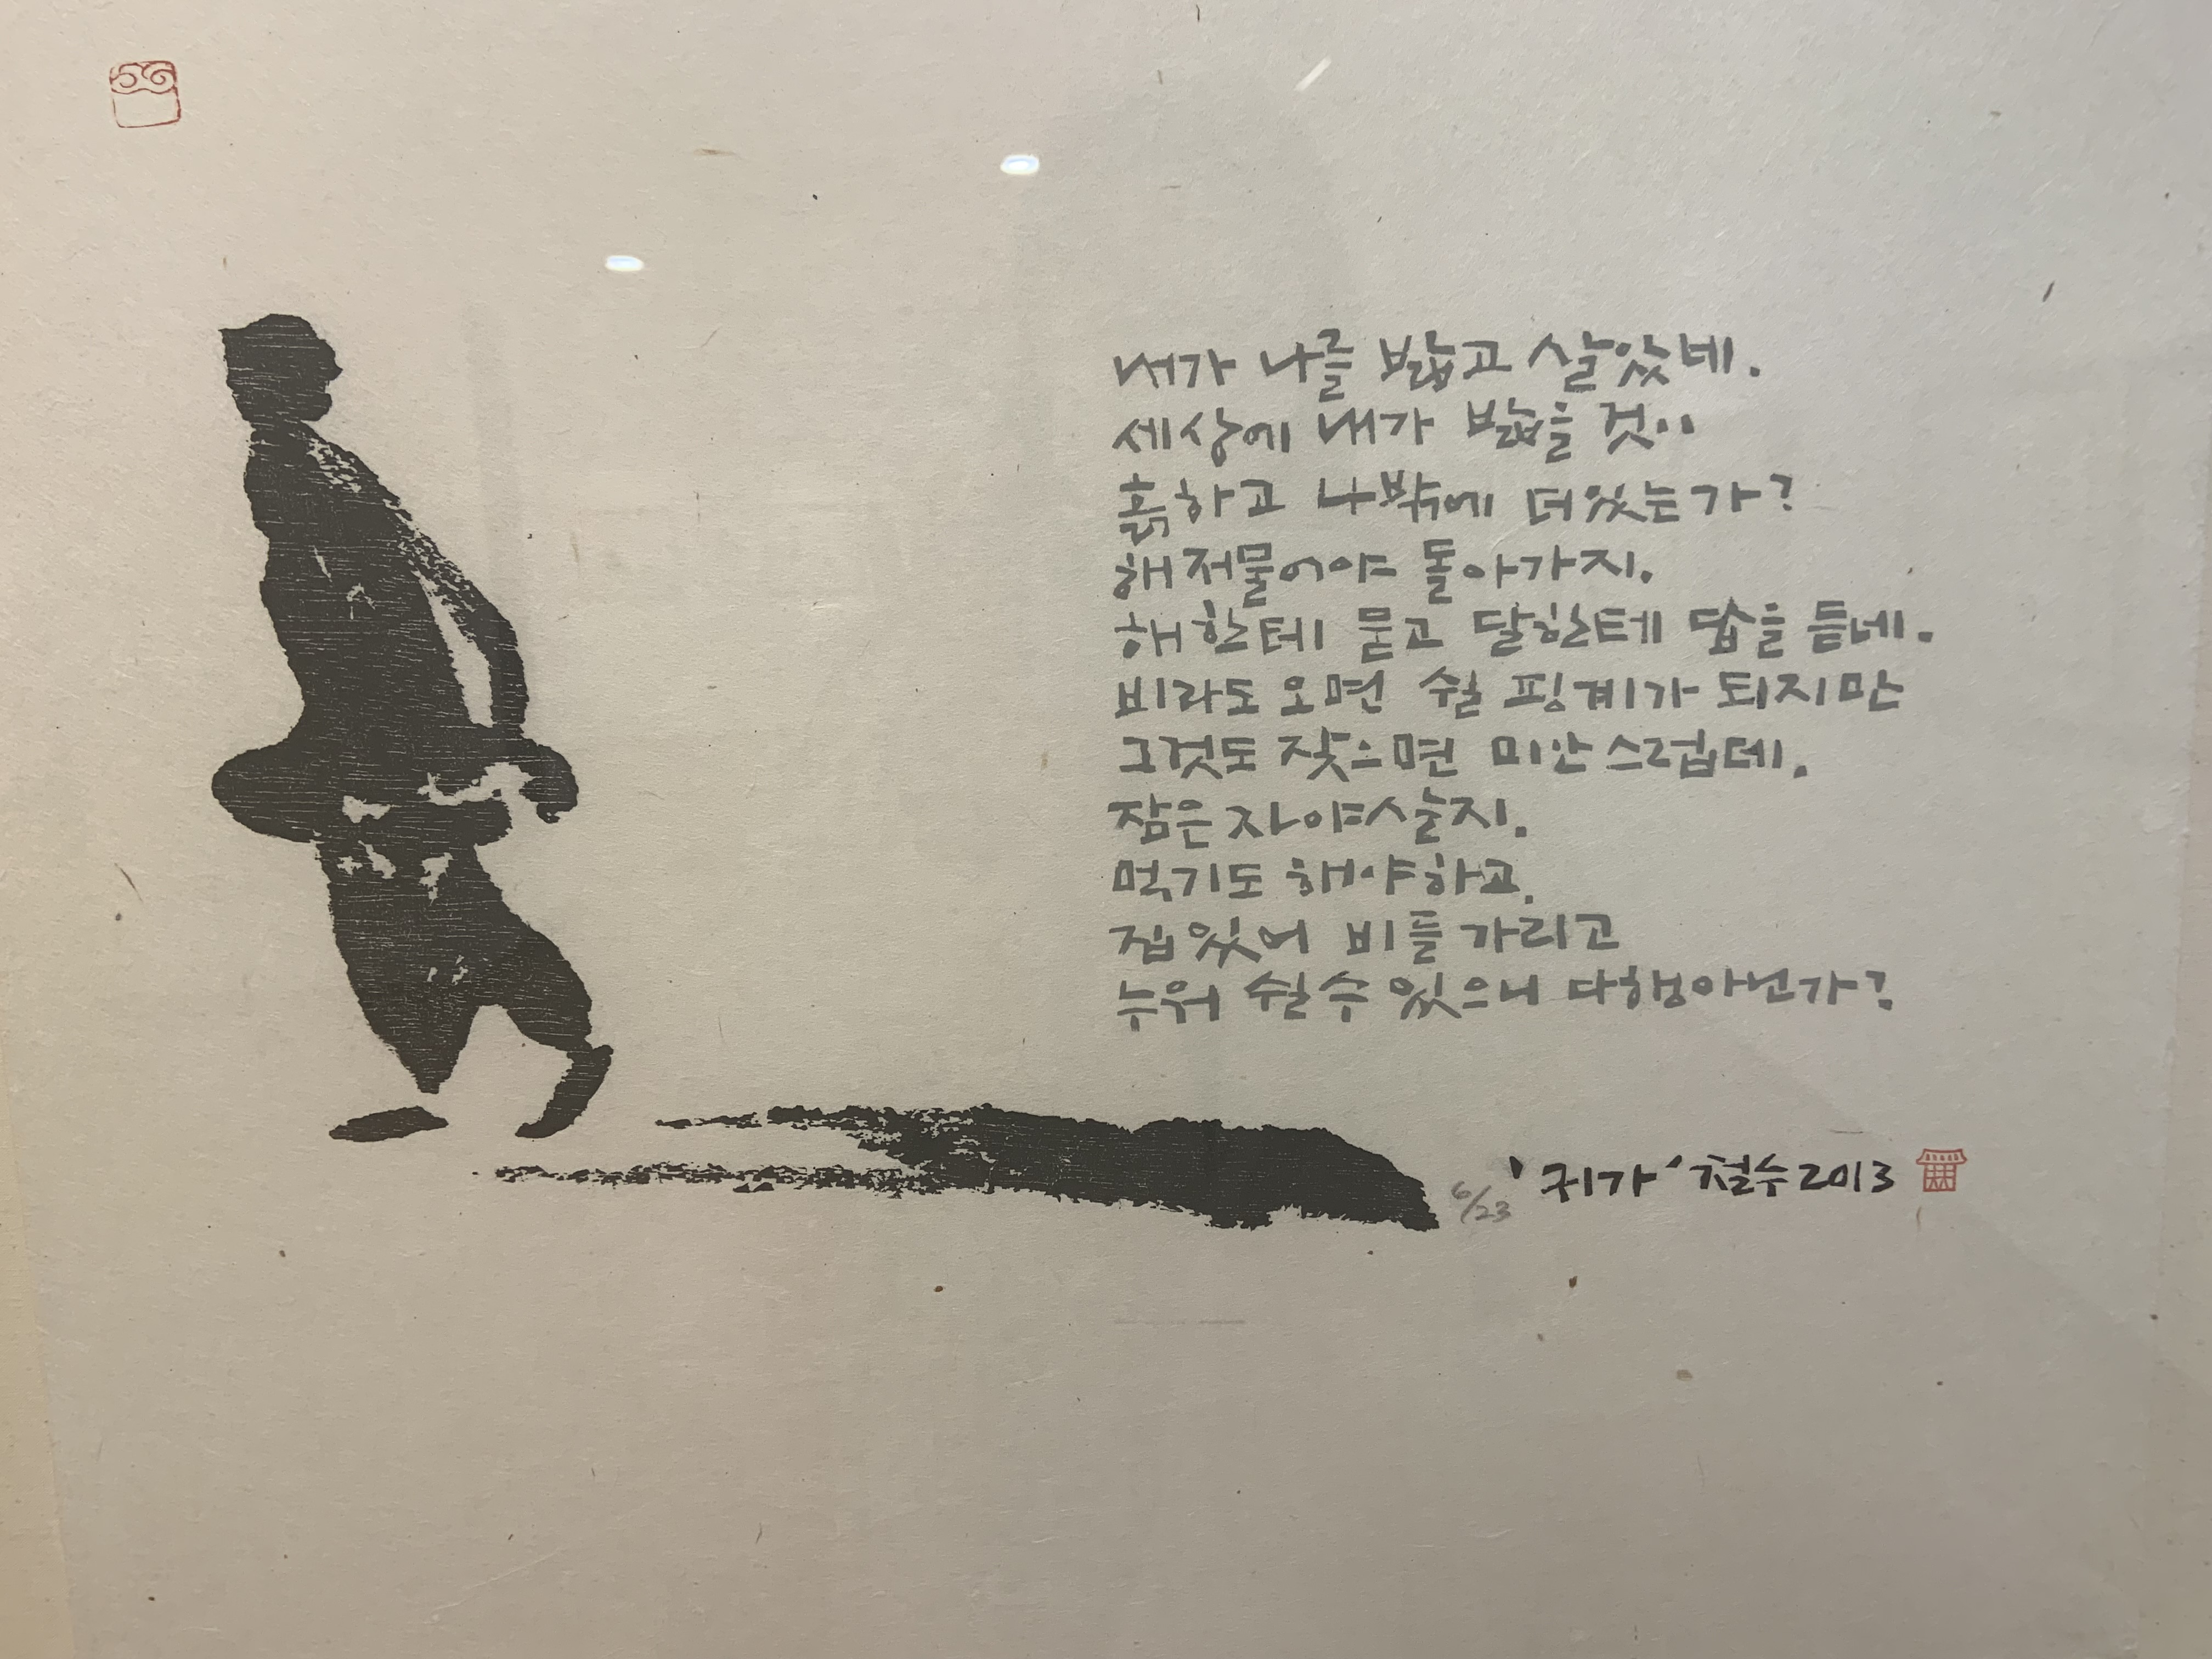 내가 나를 밟고 살았네.
세상에 내가 밟을 것..
흙하고 나밖에 더있는가?
해저물어야 돌아가지.
해한테 묻고 달한테 답을 듣네.
비라도 오면 쉴 핑계가 되지만
그것도 잦으면 미안스럽데.
잠은 자야살지.
먹기도 해야하고.
집있어 비들 가리고
누워 쉴수 있으니 다행아닌가?
6/23 '귀가' 철수 2013